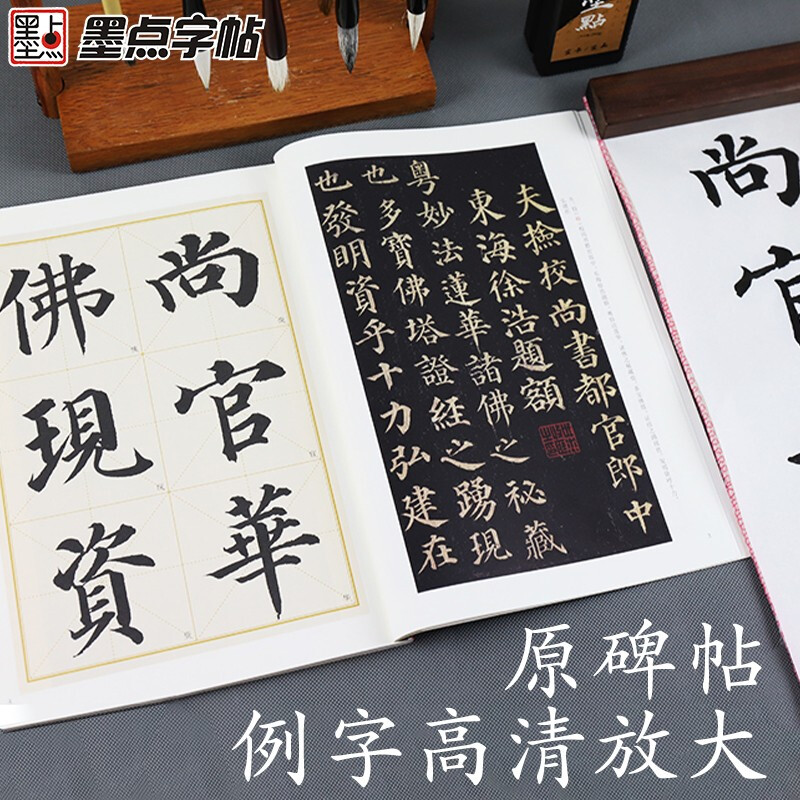 墨点
墨点字帖
墨點
尚官華
佛現資
夫撿挍尚書都官郎中
東海徐浩題額
粵妙法蓮華諸佛之秘藏
也多寶佛塔證經之踴現
也發明資乎十力弘建在
尚官
原碑帖
例字高清放大